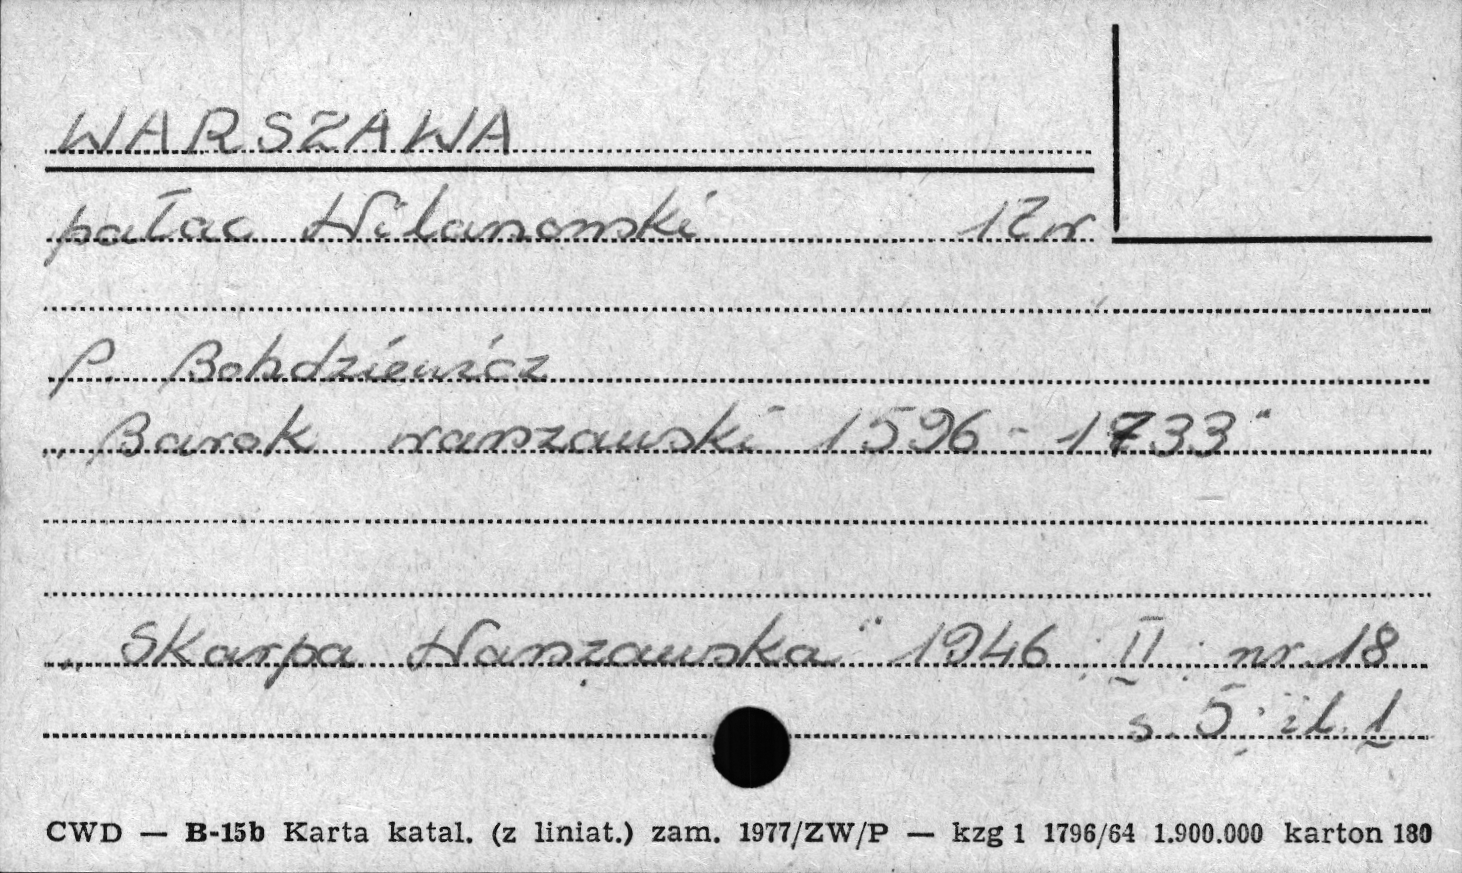 WARSZAWA
pałac Wilanowski 17 w
P. Bohdziewicz
„Barok warszawski 1596 - 1733"
„Skarpa Warszawska" 1946 : II : nr. 18
s. 5 ; il. 1
CWD — B-15b Karta katal. (z liniat.) zam. 1977/ZW/P — kzg 1 1796/64 1.900.000 karton 180